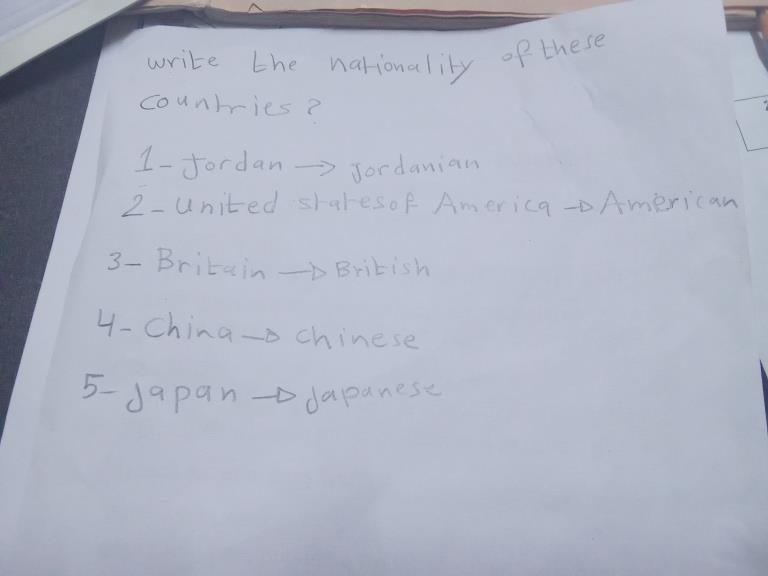 write the nationality of these
countries?
1- Jordan → jordanian
2- United states of America → American
3- Britain → British
4- China → chinese
5- Japan → Japanese